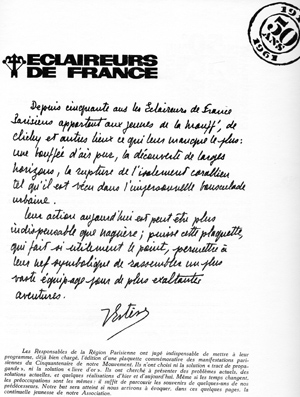 1911
50
ANS
1961
ECLAIREURS
DE FRANCE
Depuis cinquante ans les Eclaireurs de France
Parisiens apportent aux jeunes de la mouff', de
clichy et autres lieux ce qui leur manque le plus:
une bouffée d'air pur, la découverte de larges
horizons, la rupture de l'isolement
tel qu'il est vécu dans l'impersonnelle bousculade
urbaine.
Leur action aujourd'hui est peut être plus
indispensable que naguère; puisse cette plaquette,
qui fait si utilement le point, permettre à
leur nef symbolique de rassembler un plus
vaste équipage pour de plus exaltantes
aventures.
Les Responsables de la Région Parisienne ont jugé indispensable de mettre à leur
programme, déjà bien chargé, l'édition d'une plaquette commémorative des manifestations pari-
siennes du Cinquantenaire de notre Mouvement. Ils n'ont choisi ni la solution « tract de propa-
gande », ni la solution « livre d'or ». Ils ont cherché à présenter des problèmes actuels, des
solutions actuelles, et quelques réalisations d'hier et d'aujourd'hui. Même si les temps changent,
les préoccupations sont les mêmes : il suffit de parcourir les souvenirs de quelques-uns de nos
prédécesseurs. Notre but sera atteint si nous arrivons à évoquer, dans ces quelques pages, la
continuelle jeunesse de notre Association.